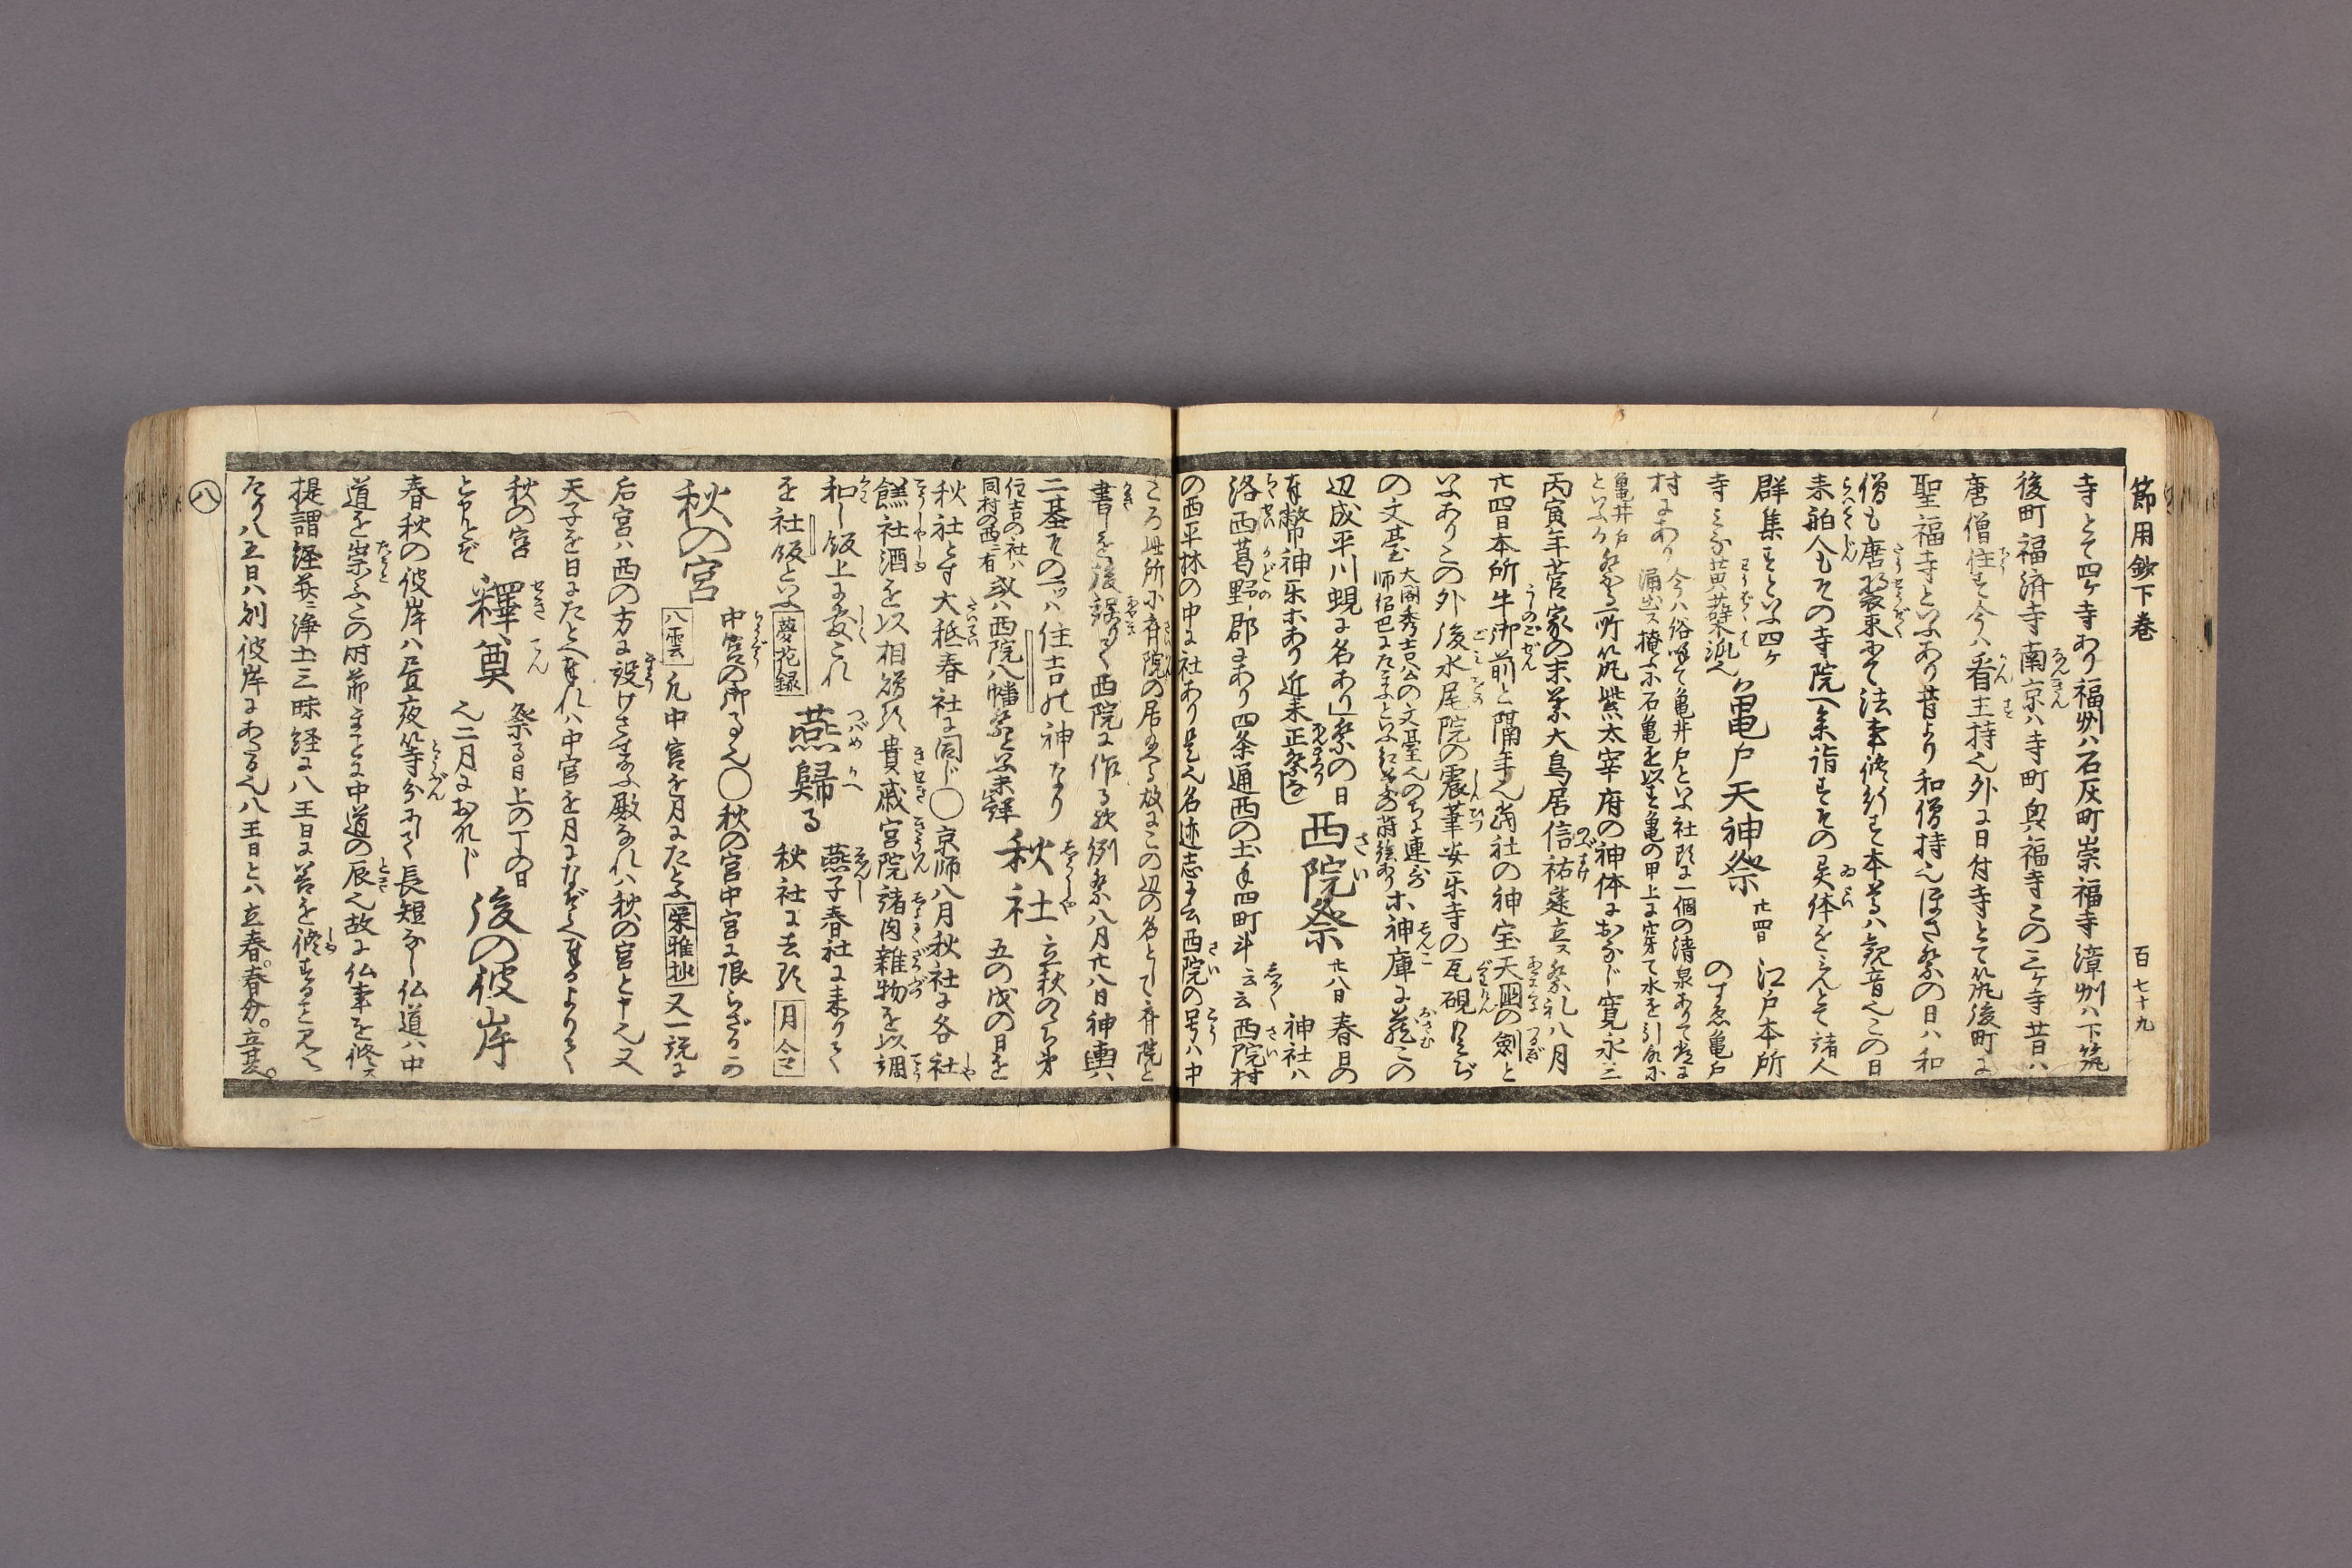 節用鈔下巻
百七十九
寺とて四ケ寺あり福州ハ石灰町崇福寺漳州ハ下筑
後町福済寺南京ハ寺町興福寺この三ケ寺昔ハ
唐僧住す今ハ看主持也外に日付寺とて筑後町に
聖福寺といふあり昔より和僧持也ほさ祭の日ハ和
僧も唐装束にて法事修行す本尊ハ観音也この日
来舶人もその寺院へ参詣すその異体をみんとて諸人
群集すといふ四ケ
寺みな黄檗派也
亀戸天神祭
廿四日
江戸本所
のすゑ亀戸
村にあり
今ハ俗略て亀井戸といふ社頭に一個の清泉ありて常に
涌出ス掩ふに石亀を以す亀の甲上に穿て水を引
亀井戸
といふ
祭る所筑紫太宰府の神体におなじ寛永三
丙寅年菅家の末葉大鳥居信祐建立ス祭礼八月
廿四日本所牛御前と隔年也当社の神宝天国の劍と
いふありこの外後水尾院の震筆安楽寺の瓦硯
の文臺
大閤秀吉公の文臺也のち連歌
師紹巴にたまふといふ
ホ神庫に蔵この
辺成平川蜆に名あり祭の日
有幣神楽ホあり近来正祭を
西院祭
廿八日
春日の
神社ハ
洛西葛野郡にあり四条通西の土手四町斗云云西院村
の西平林の中に社あり是也名迹志に云西院の号ハ中
ころ此所に斉院の居玉へる故にこの辺の名として斉院と
書しを後誤りて西院に作る歟例祭八月廿八日神輿ハ
二基その一ッハ住吉の神なり
住吉の社ハ
同村の西ニ有
或ハ西院八幡祭と云
秋社
立秋のち第
五の戊の日を
秋社とす大抵春社に同じ○京師八月秋社に各社
糕社酒を以相送る貴戚宮院諸肉雑物を以調
和し飯上に安これ
を社飯といふ
夢花録
燕歸る
燕子春社に来りて
秋社に去る
月令
秋の宮
中宮の御事也○秋の宮中宮に限らざるか
八雲
凡中宮を月にたとふ
栄雅抄
又一説に
后宮ハ西の方に設けさせ玉ふ殿なれハ秋の宮と申也又
天子を日にたとへ奉れハ中宮を月になぞらへ奉るよりて
秋の宮
と申とぞ
釋奠
祭る日上の丁の日
也二月におなじ
後の彼岸
春秋の彼岸ハ昼夜等分にて長短なし仏道ハ中
道を崇ふこの时節まことに中道の辰也故に仏事を修ス
提謂経并ニ浄土三昧経に八王日に善を修すること見え
たり八王日ハ則彼岸にあたる也八王日とハ立春。春分。立夏。
八